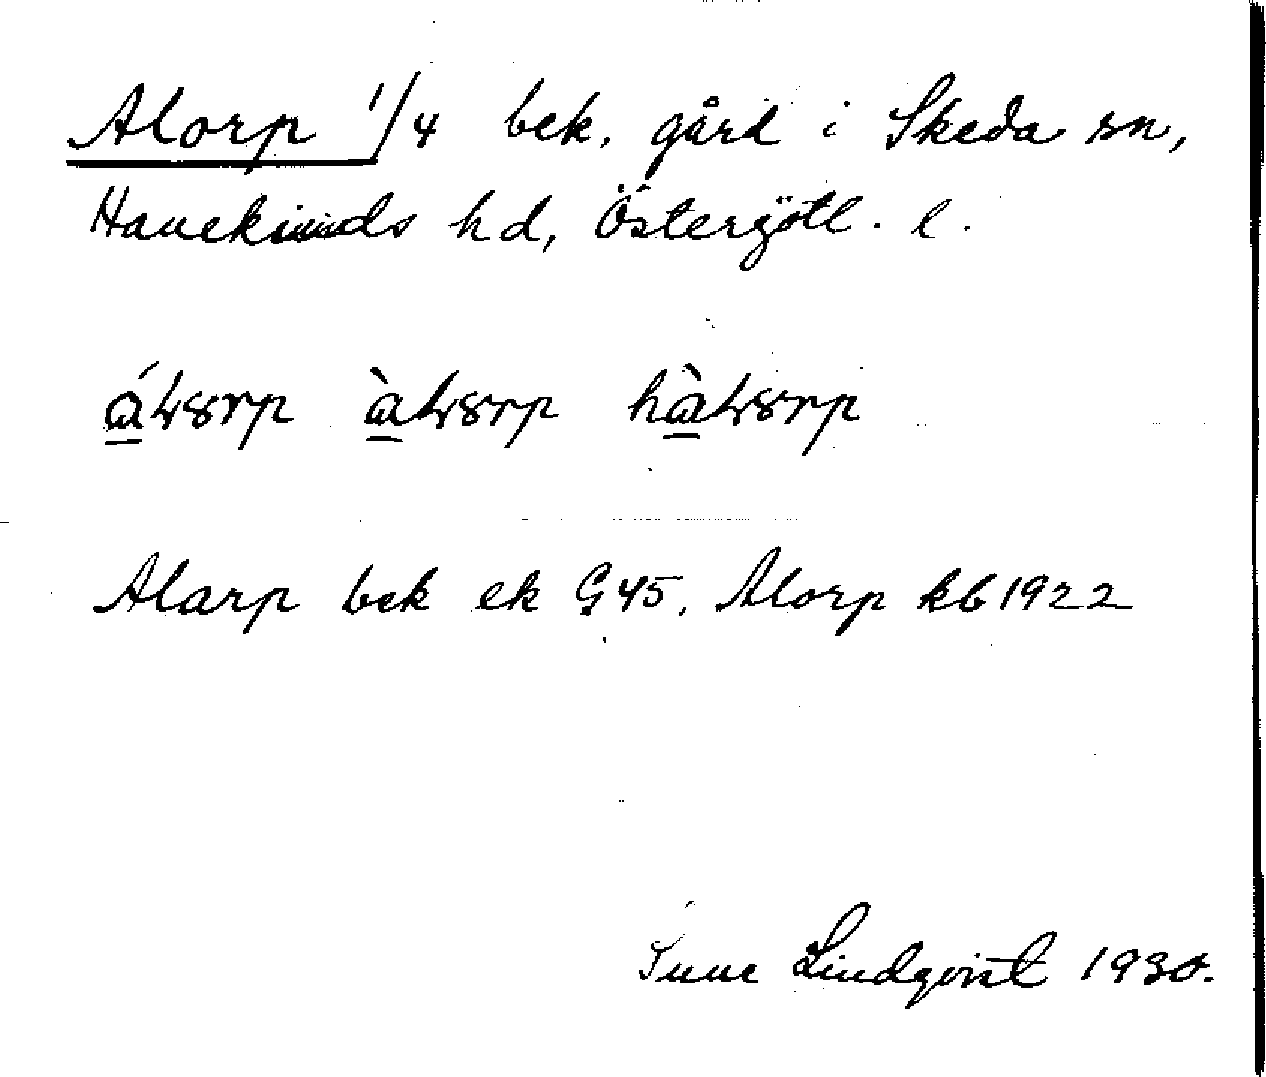 Alorp 1/4 bek. gård i Skeda sn,
Hanekinds hd, Östergötl. l.
Alarp bek ek G 45. Alorp kb 1922
Sune Lindqvist 1930.